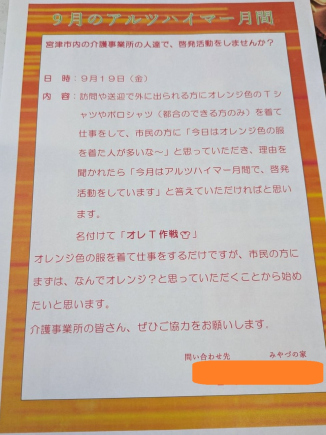 9月のアルツハイマー月間
宮津市内の介護事業所の人達で、啓発活動をしませんか？
日　時：9月19日（金）
内　容：訪問や送迎で外に出られる方にオレンジ色のTシ
ャツやポロシャツ（都合のできる方のみ）を着て
仕事をして、市民の方に「今日はオレンジ色の服
を着た人が多いな～」と思っていただき、理由を
聞かれたら「今月はアルツハイマー月間で、啓発
活動をしています」と答えていただければと思い
ます。
名付けて「オレT作戦」
オレンジ色の服を着て仕事をするだけですが、市民の方に
まずは、なんでオレンジ？と思っていただくことから始め
たいと思います。
介護事業所の皆さん、ぜひご協力をお願いします。
問い合わせ先　みやづの家